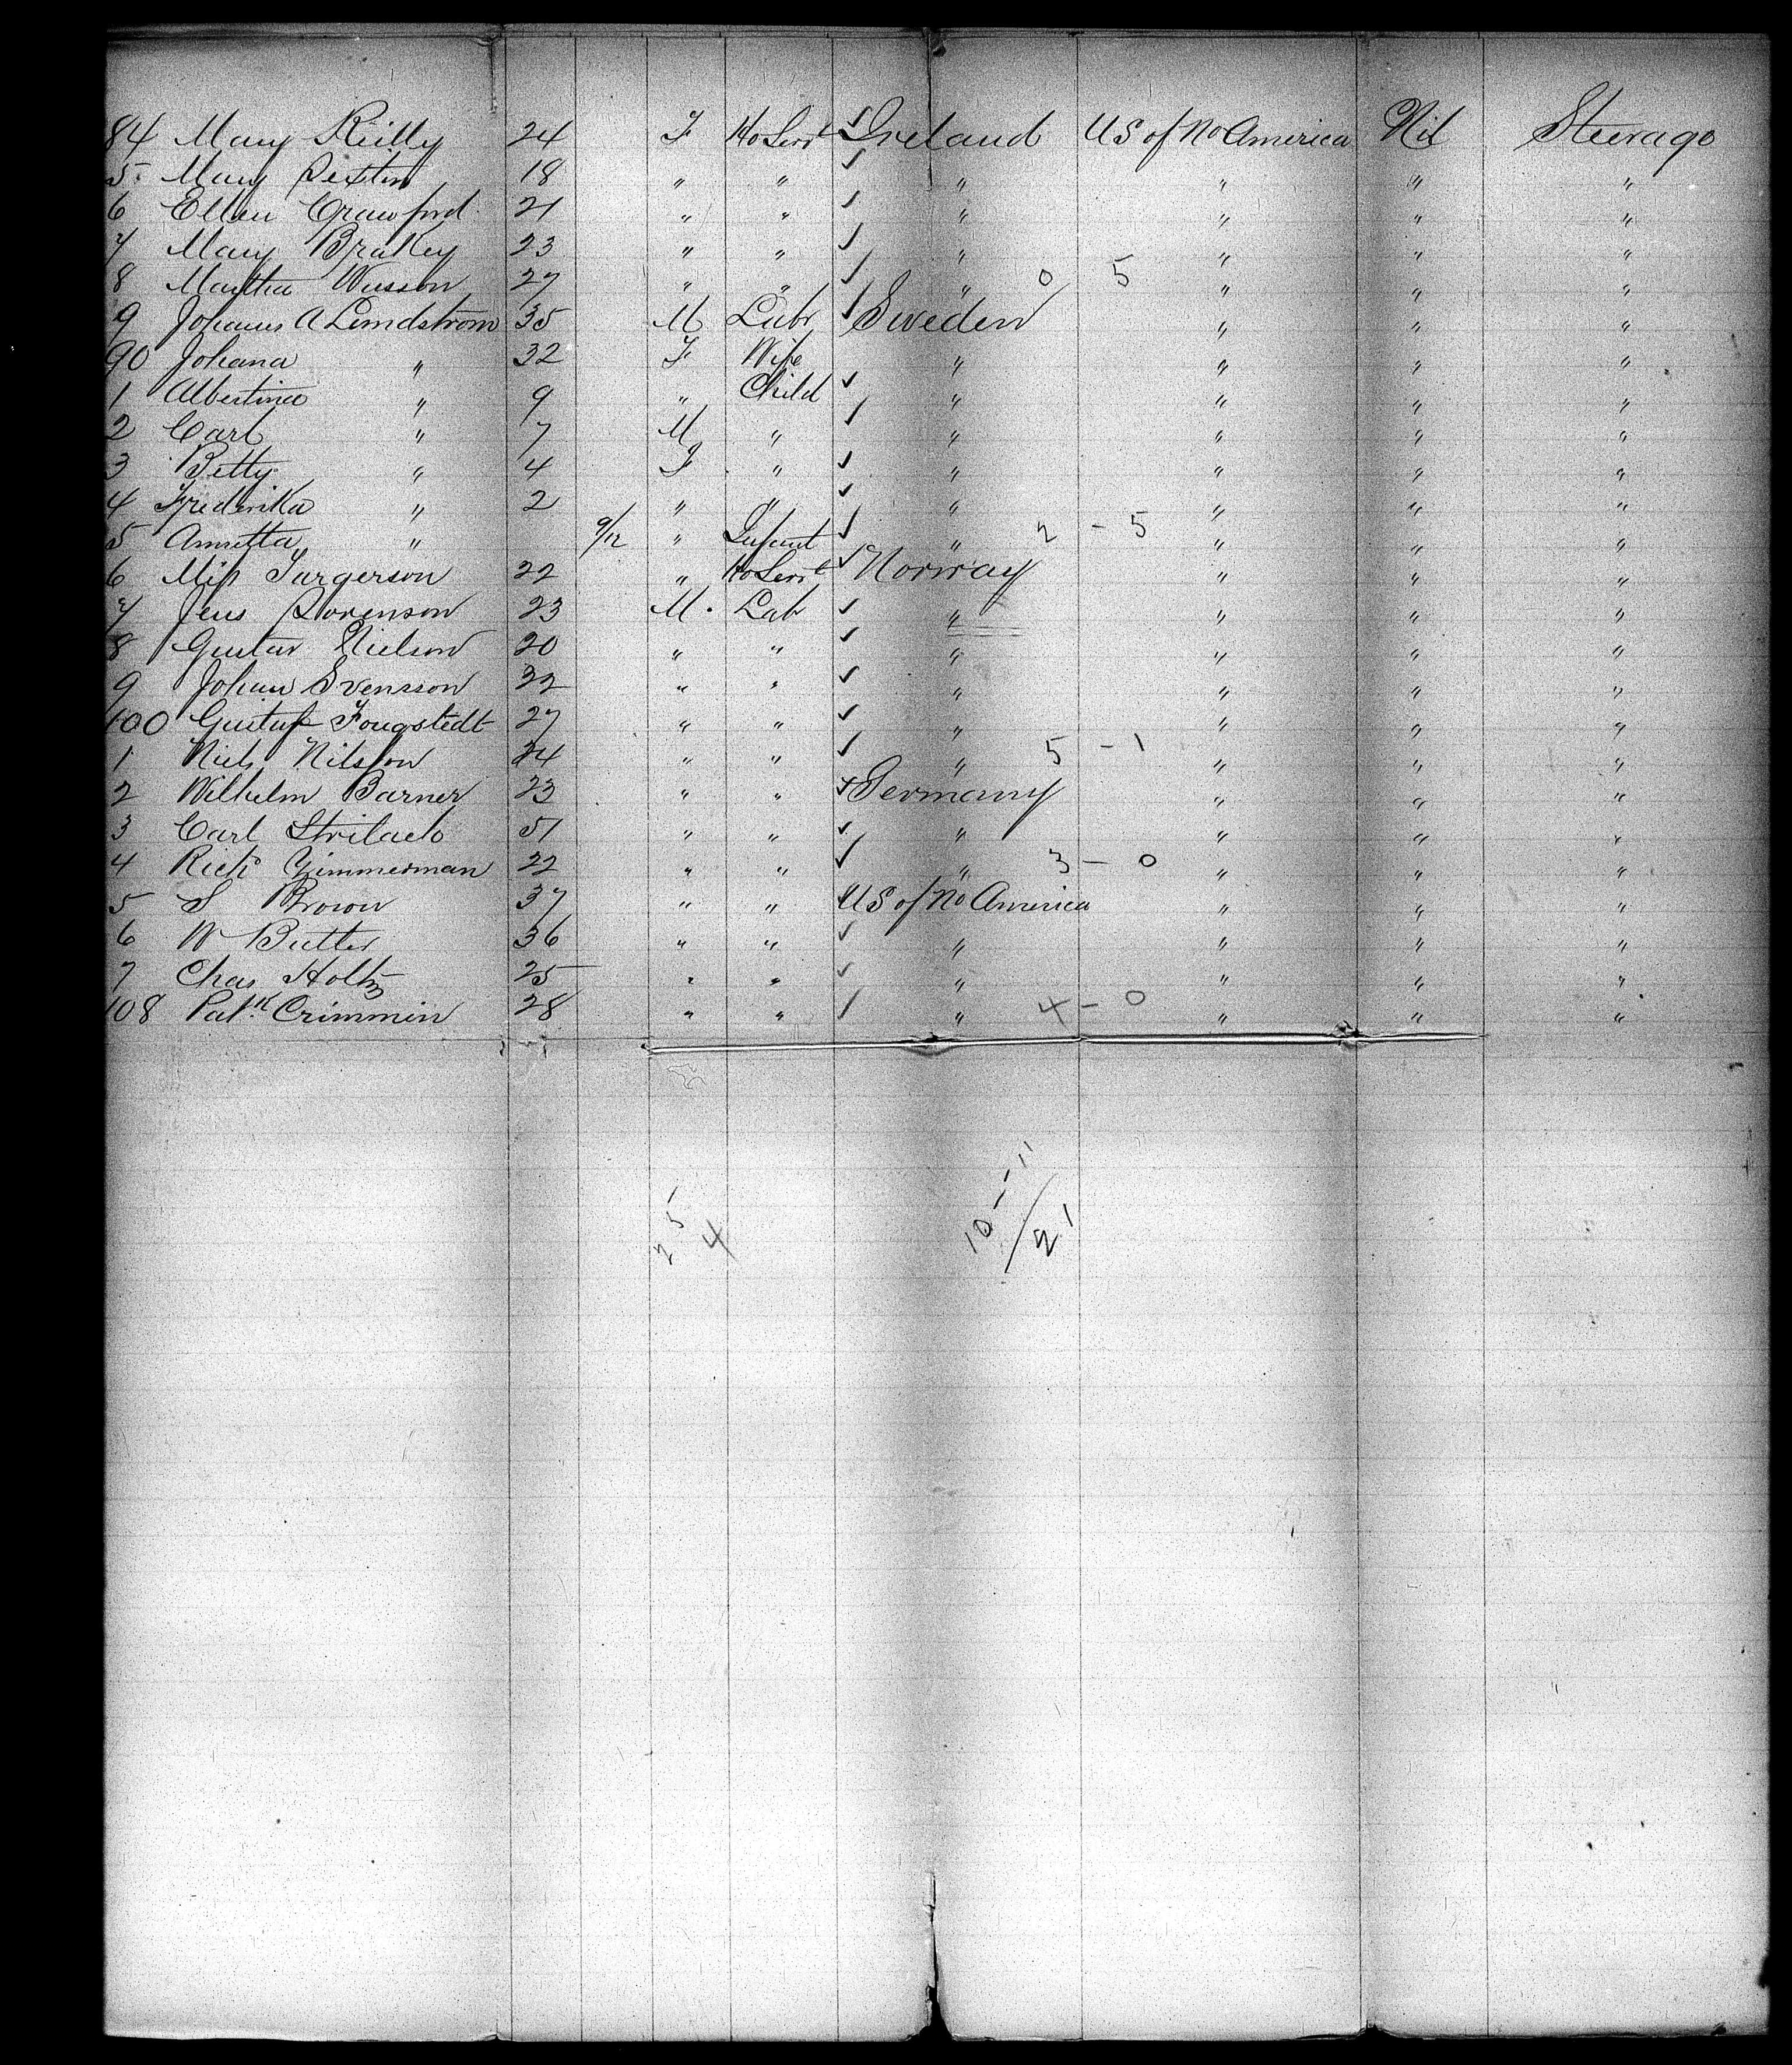 84 Mary Reilly 24 F Ho Servt ✓ Ireland US of No America Nil Steerage
5 Mary Sextin 18 " " ✓ " " " "
6 Ellen Crawford 21 " " ✓ " " " "
7 Mary Brakey 23 " " ✓ " " " "
8 Martha Wasson 27 " " ✓ " 0 5 " " "
9 Johanus A Lemdstrom 35 M Labr ✓ Sweden " " "
90 Johana " 32 F Wife " " " "
1 Albertina " 9 " Child ✓ " " " "
2 Carl " 7 M " ✓ " " " "
3 Betty " 4 F " ✓ " " " "
4 Frederika " 2 " " ✓ " " " "
5 Annetta " 9/12 " Infant ✓ " 2 - 5 " " "
6 Miss Turgerson 22 " Ho Servt ✓ Norway " " "
7 Jens Sorenson 23 M. Lab ✓ " " " "
8 Gustav Nielson 20 " " ✓ " " " "
9 Johan Svensson 32 " " ✓ " " " "
100 Gustaf Fougstedt 27 " " ✓ " " " "
1 Niels Nilsson 24 " " ✓ " 5 - 1 " " "
2 Wilhelm Barner 23 " " ✓ Germany " " "
3 Carl 51 " " ✓ " " " "
4 Richd Zimmerman 22 " " ✓ " 3 - 0 " " "
5 S Brown 37 " " ✓ US of No America " " "
6 W Butler 36 " " ✓ " " " "
7 Chas Holtz 25 " " ✓ " " " "
108 Patk Crimmin 28 " " ✓ " 4 - 0 " " "
25
4
10 - 11
21